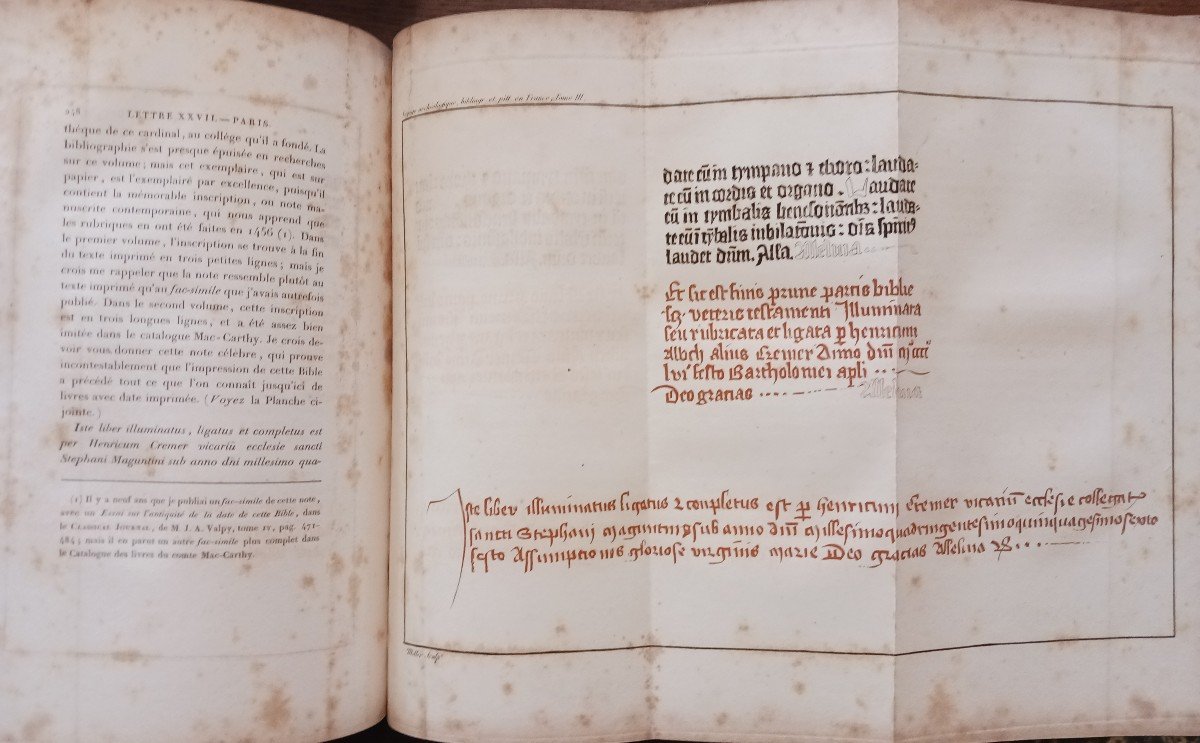 248 LETTRE XXVII.—PARIS.
thèque de ce cardinal, au collège qu'il a fondé. La
bibliographie s'est presque épuisée en recherches
sur ce volume; mais cet exemplaire, qui est sur
papier, est l'exemplaire par excellence, puisqu'il
contient la mémorable inscription, ou note ma-
nuscrite contemporaine, qui nous apprend que
les rubriques en ont été faites en 1456 (1). Dans
le premier volume, l'inscription se trouve à la fin
du texte imprimé en trois petites lignes; mais je
crois me rappeler que la note ressemble plutôt au
texte imprimé qu'au fac-simile que j'avais autrefois
publié. Dans le second volume, cette inscription
est en trois longues lignes, et a été assez bien
imitée dans le catalogue Mac-Carthy. Je crois de-
voir vous donner cette note célèbre, qui prouve
incontestablement que l'impression de cette Bible
a précédé tout ce que l'on connaît jusqu'ici de
livres avec date imprimée. (Voyez la Planche ci-
jointe.)
Iste liber illuminatus, ligatus et completus est
per Henricum Cremer vicariū ecclesie sancti
Stephani Maguntini sub anno dni millesimo qua-
(1) Il y a neuf ans que je publiai un fac-simile de cette note,
avec un Essai sur l'antiquité de la date de cette Bible, dans
le CLASSICAL JOURNAL, de M. J. A. Valpy, tome IV, pag. 471-
484; mais il en parut un autre fac-simile plus complet dans
le Catalogue des livres du comte Mac-Carthy.
bibliogr. et pitt. en France, Tome III
date eū in tympano ⁊ choro: lauda-
te eū in cordis et organo. Laudate
eū in cymbalis benesonātibꝫ: lauda-
te eū ī cȳbalis iubilatōnis: oīs spirit9
laudet dnm. Alla. Alleluia
Et sic est finis prime partis biblie
scꝫ veteris testamenti Illuminata
seu rubricata et ligata p henricum
Albch alius Cremer Anno dni
lvi festo Bartholomei apli
Deo gracias Alleluia
Iste liber illuminatus ligatus ⁊ completus est p henricum Cremer vicariū ecclesie collegat
sancti Stephani maguntini sub anno dni Millesimoquadringentesimoquinquagesimosexto
festo Assumptionis gloriose virginis marie Deo gracias Alleluia